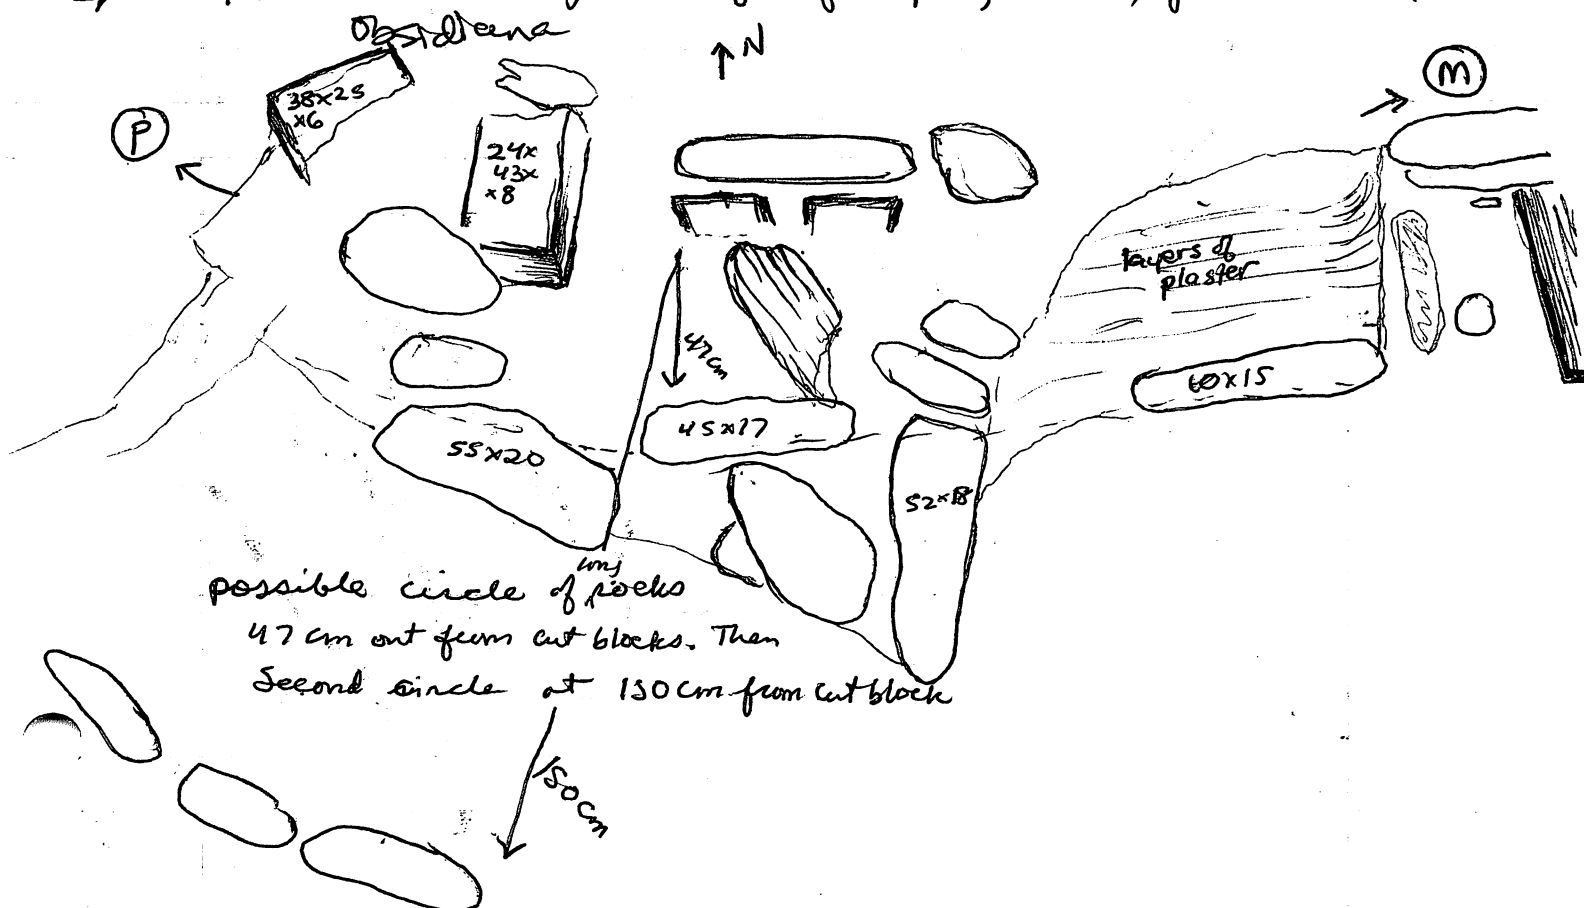 obsidiana
↑ N
M
P
38x25
x6
24x
43x
x8
layers of
plaster
47cm
60x15
45x17
55x20
52x18
long
possible circle of rocks
47 cm out from cut blocks. Then
second circle at 150 cm from cut block
150 cm